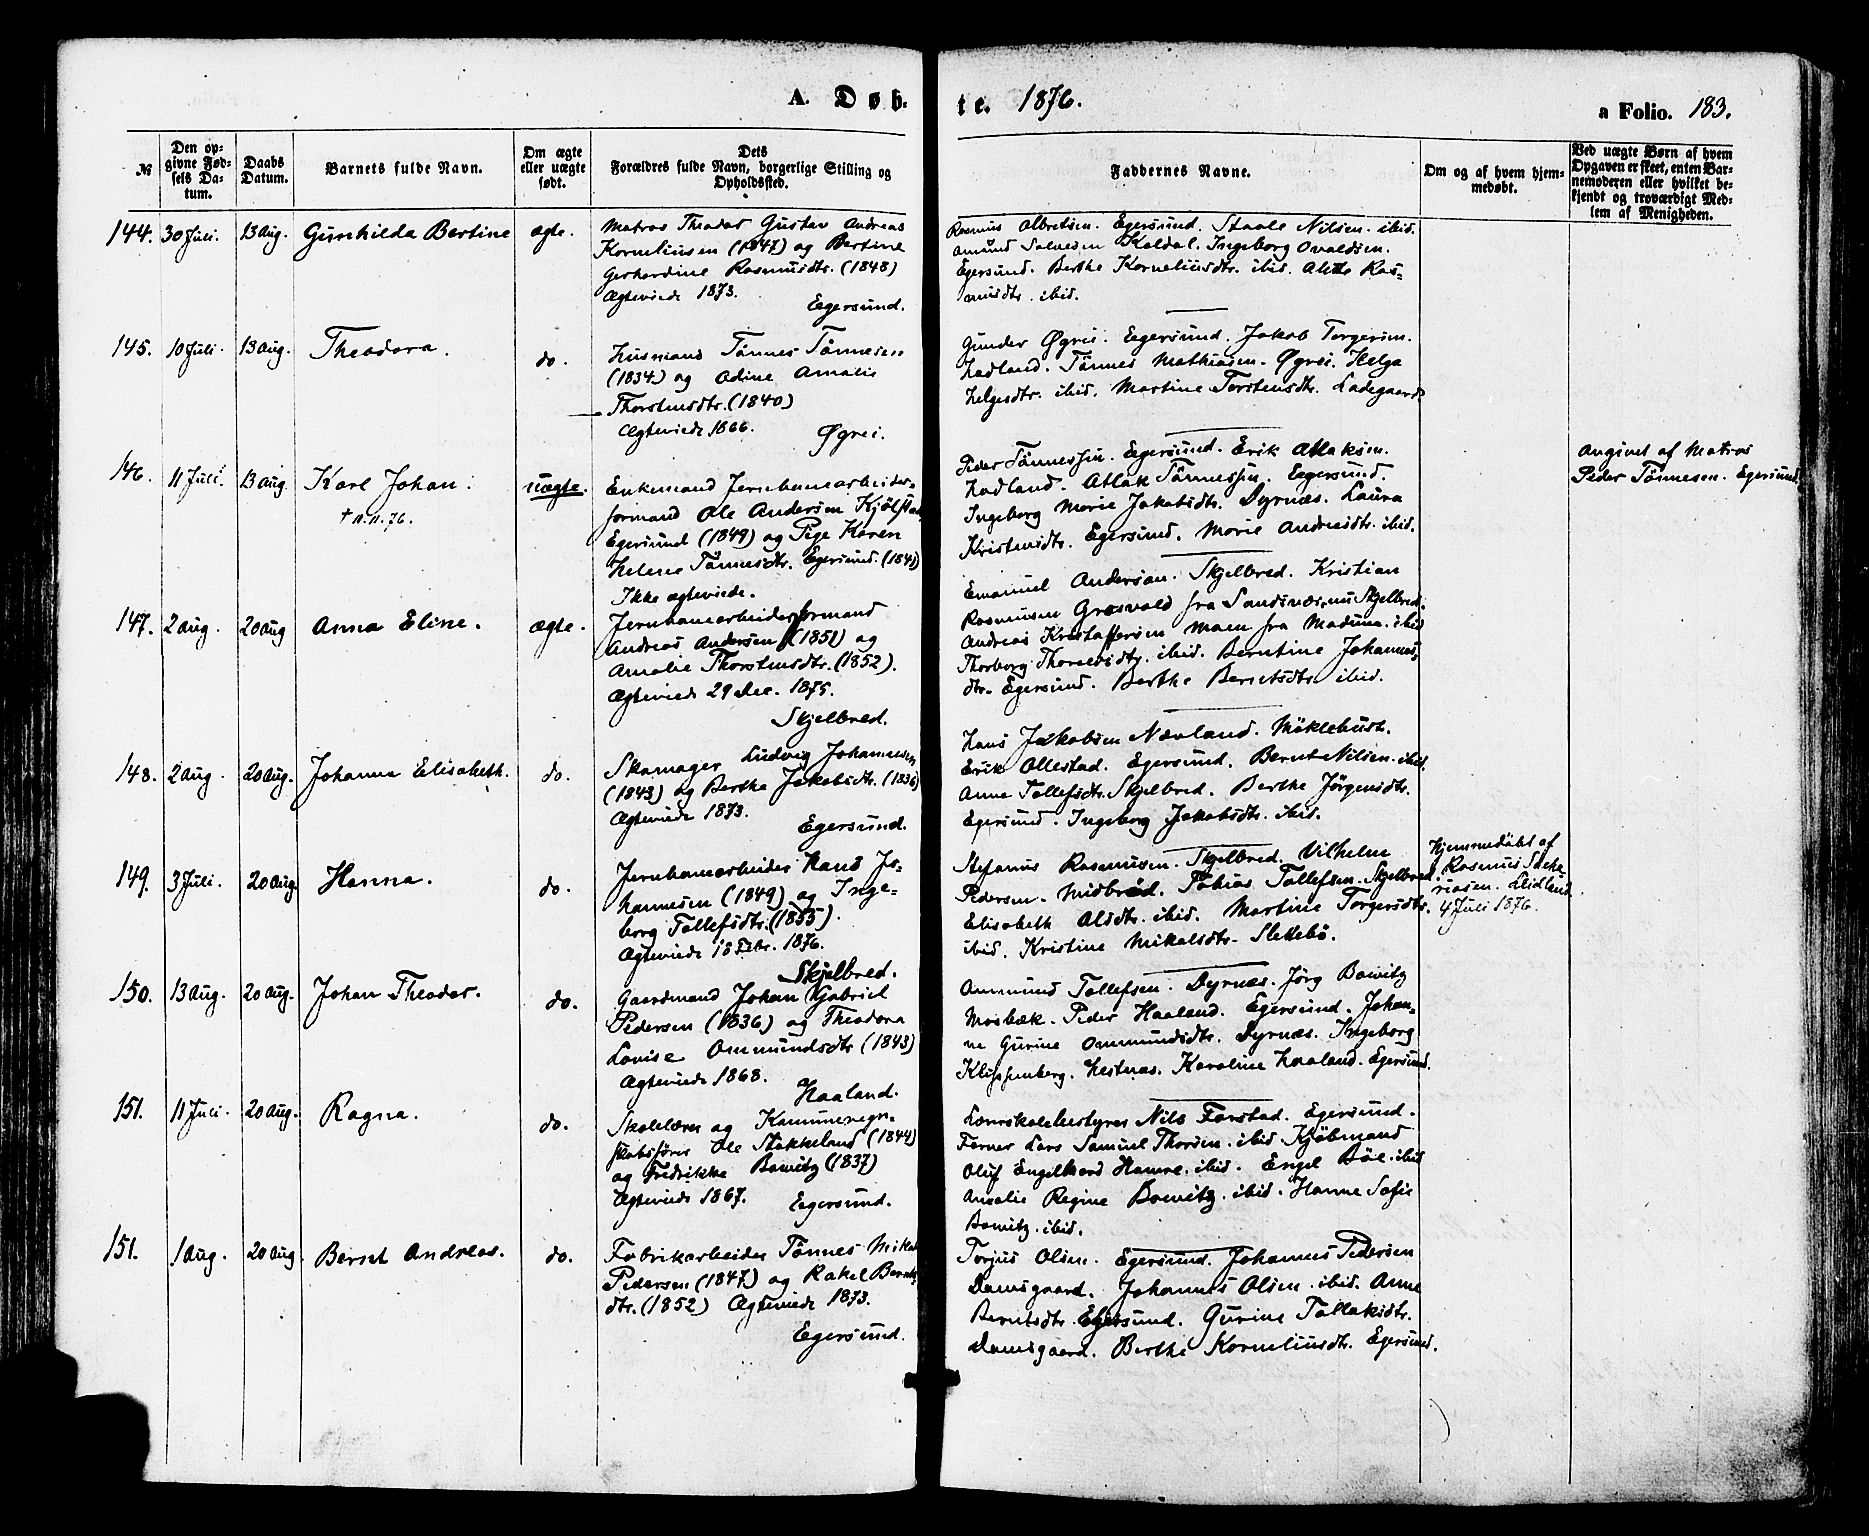 A. Døb-
te. 1876.
a Folio. 183.
№
Den op-
givne Fød-
sels Da-
tum.
Daabs
Datum.
Barnets fulde Navn.
Om ægte
eller uægte
født.
Dets
Forældres fulde Navn, borgerlige Stilling og
Opholdssted.
Faddernes Navne.
Om og af hvem hjem-
medøbt.
Ved uægte Børn af hvem
Opgaven er skeet, enten Bar-
nemoderen eller hvilket be-
kjendt og troværdigt Med-
lem af Menigheden.
144. 30 Juli. 13 Aug. Gunhilda Bertine ægte.
Matros Theodor Gustav Andreas
Korneliusen (1847) og Bertine
Gerhardine Rasmusdtr. (1848)
Ægteviede 1873.
Egersund.
Rasmus Albretsen. Egersund. Staale Nilsen. ibid.
Amund Salvesen Koldal. Ingeborg Ovaldsen.
Egersund. Berthe Korneliusdtr. ibid. Alette Ras-
musdtr. ibid.
145. 10 Juli. 13 Aug. Theodora. do.
Husmand Tønnes Tønnesen
(1834) og Adine Amalie
Thorstensdtr. (1840)
Ægteviede 1866.
Øgrei.
Gunder Øgrei. Egersund. Jakob Torgersen.
Hadland. Tønnes Mathiasen. Øgrei. Helga
Helgesdtr. ibid. Martine Torstensdtr. Ladegaard
146. 11 Juli. 13 Aug. Karl Johan.
† 11.11.76.
uægte.
Enkemand Jernbanearbeider-
formand Ole Andersen Kjølstad
Egersund (1849) og Pige Karen
Helene Tønnesdtr. Egersund. (1841)
Ikke ægteviede.
Peder Tønnessen. Egersund. Erik Atlaksen.
Hadland. Atlak Tønnessen. Egersund.
Ingeborg Marie Jakobsdtr. Dyrnæs. Laura
Kristensdtr. Egersund. Marie Andreasdtr. ibid.
Angivet af Matros
Peder Tønnesen. Egersund.
147. 2 Aug. 20 Aug Anna Eline. ægte.
Jernbanearbeiderformand
Andreas Andersen (1851) og
Amalie Thorstensdtr. (1852).
Ægteviede 29 Dec. 1875.
Skjelbred.
Emanuel Anderson. Skjelbred. Kristian
Rasmusen Grøsvald fra Sandsnæs, nu Skjelbred.
Andreas Kristoffersen Moen fra Maduna. ibid
Thorborg ibid. Berntine Johannes-
dtr. Egersund. Berthe Berntsdtr. ibid.
148. 2 Aug. 20 Aug. Johanna Elisabeth. do.
Skomager Ludvig Johannesen
(1843) og Berthe Jakobsdtr. (1836)
Ægteviede 1873.
Egersund.
Hans Jakobsen Nævland. Møklebust.
Erik Ollestad. Egersund. Bernt Nilsen. ibid.
Anne Tollefsdtr. Skjelbred. Berthe Jørgensdtr.
Egersund. Ingeborg Jakobsdtr. ibid.
149. 3 Juli. 20 Aug. Hanna. do.
Jernbanearbeider Hans Jo-
hannesen (1849) og Inge-
borg Tollefsdtr. (1855).
Ægteviede 18 Febr. 1876.
Skjelbred.
Stefanus Rasmusen. Skjelbred. Vilhelm
Pedersen. Midbrød. Tobias Tollefsen. Skjelbred.
Elisabeth Olsdtr. ibid. Martine Torgersdtr.
ibid. Kristine Mikalsdtr. Slettebø.
Hjemmedøbt af
Rasmus Sake
riasen. Eidland
4 Juli 1876.
150. 13 Aug. 20 Aug. Johan Theodor. do.
Gaardmand Johan Gabriel
Pedersen (1836) og Theodora
Lovise Ommundsdtr (1843)
Ægteviede 1868.
Haaland.
Ommund Tollefsen. Dyrnæs. Jörg Bowitz
Mosbæk. Peder Haaland. Egersund. Johan-
ne Gurine Ommundsdtr. Dyrnæs. Ingeborg
Klippenberg. Hestnæs. Karoline Haaland. Egersund.
151. 11 Juli. 20 Aug. Ragna. do.
Skolelærer og Kommuneregn-
skabsfører Ole Stokkeland (1844)
og Fredrikke Bowitz (1837)
Ægteviede 1867. Egersund.
Lærerskolebestyrer Nils Forstad. Egersund.
Farver Lars Samuel Thorsen. ibid. Kjøbmand
Oluf Engelhard Hamre. ibid. Engel Böe. ibid
Amalie Regine Bowitz. ibid. Hanne Sofie
Bowitz. ibid.
151. 1 Aug. 20 Aug. Bernt Andreas. do.
Fabrikarbeider Tønnes Mikal
Pedersen (1847) og Rakel Bernts-
dtr. (1852) Ægteviede 1873.
Egersund.
Torjus Olsen. Egersund. Johannes Pedersen
Damsgaard. Johannes Olsen. ibid. Anne
Berntsdtr. Egersund. Gurine Tollaksdtr.
Damsgaard. Berthe Korneliusdtr. Egersund.